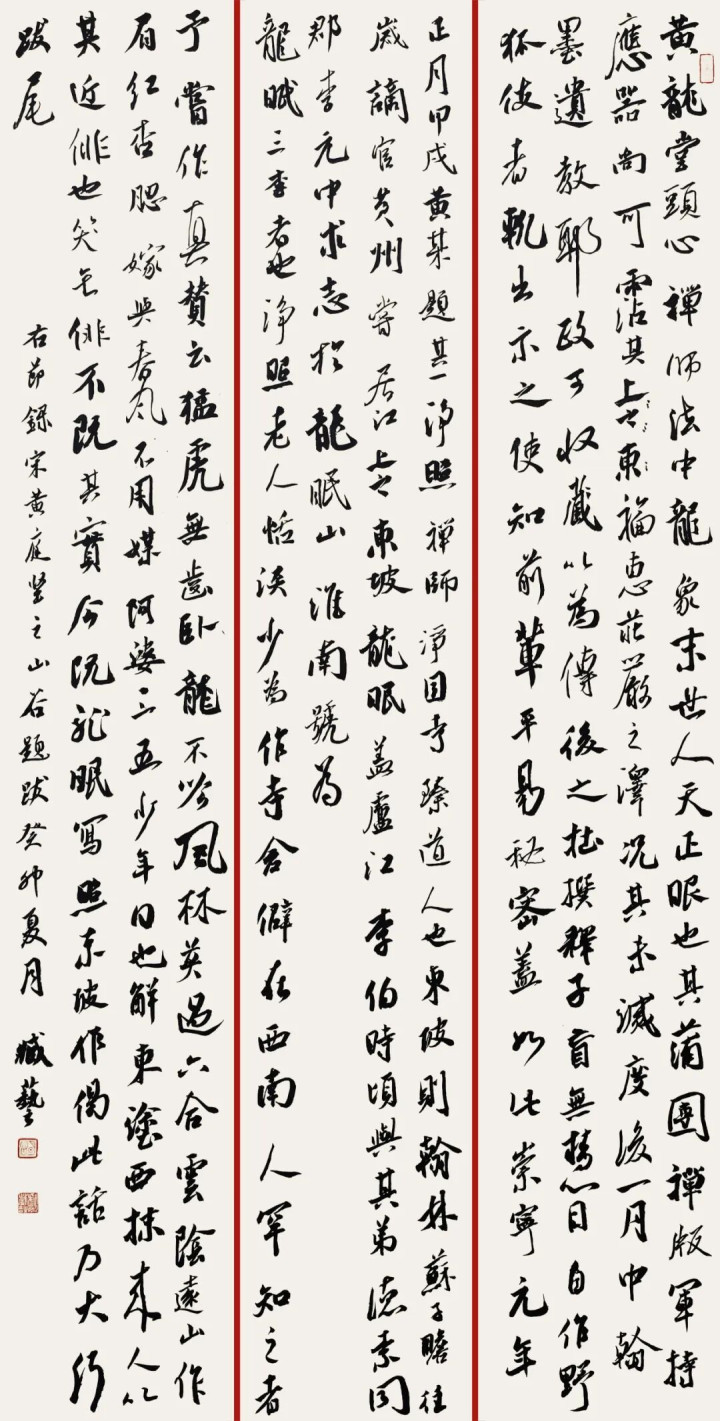 黄龍堂頭心禪師法中龍象末世人天正眼也其蒲團禪版軍持
應器尚可霑其上々東福惠莊嚴之澤況其未滅度後一月中翰
墨遺教耶政可收藏以為傳後之杜撰釋子盲無慧日自作野
狐使者輒出示之使知前輩平易秘密蓋如此崇寧元年
正月甲戌黄某題其一淨照禪師淨因寺臻道人也東坡則翰林蘇子瞻往
歲謫官黄州嘗居江上之東坡龍眠蓋廬江李伯時頃與其弟德素同
郡李元中求志於龍眠山淮南號為
龍眠三李者也淨照老人恬淡少為作寺舍僻在西南人罕知之者
予嘗作真贊云猛虎無齒臥龍不吟風林莫過六合雲陰遠山作
眉紅杏腮嫁與春風不用媒阿婆三五少年日也解東塗西抹來人以
其近俳也笑之俳不既其實今既龍眠寫照東坡作偈此話乃大行
跋尾
右節錄宋黄庭堅之山谷題跋癸卯夏月 臧藝